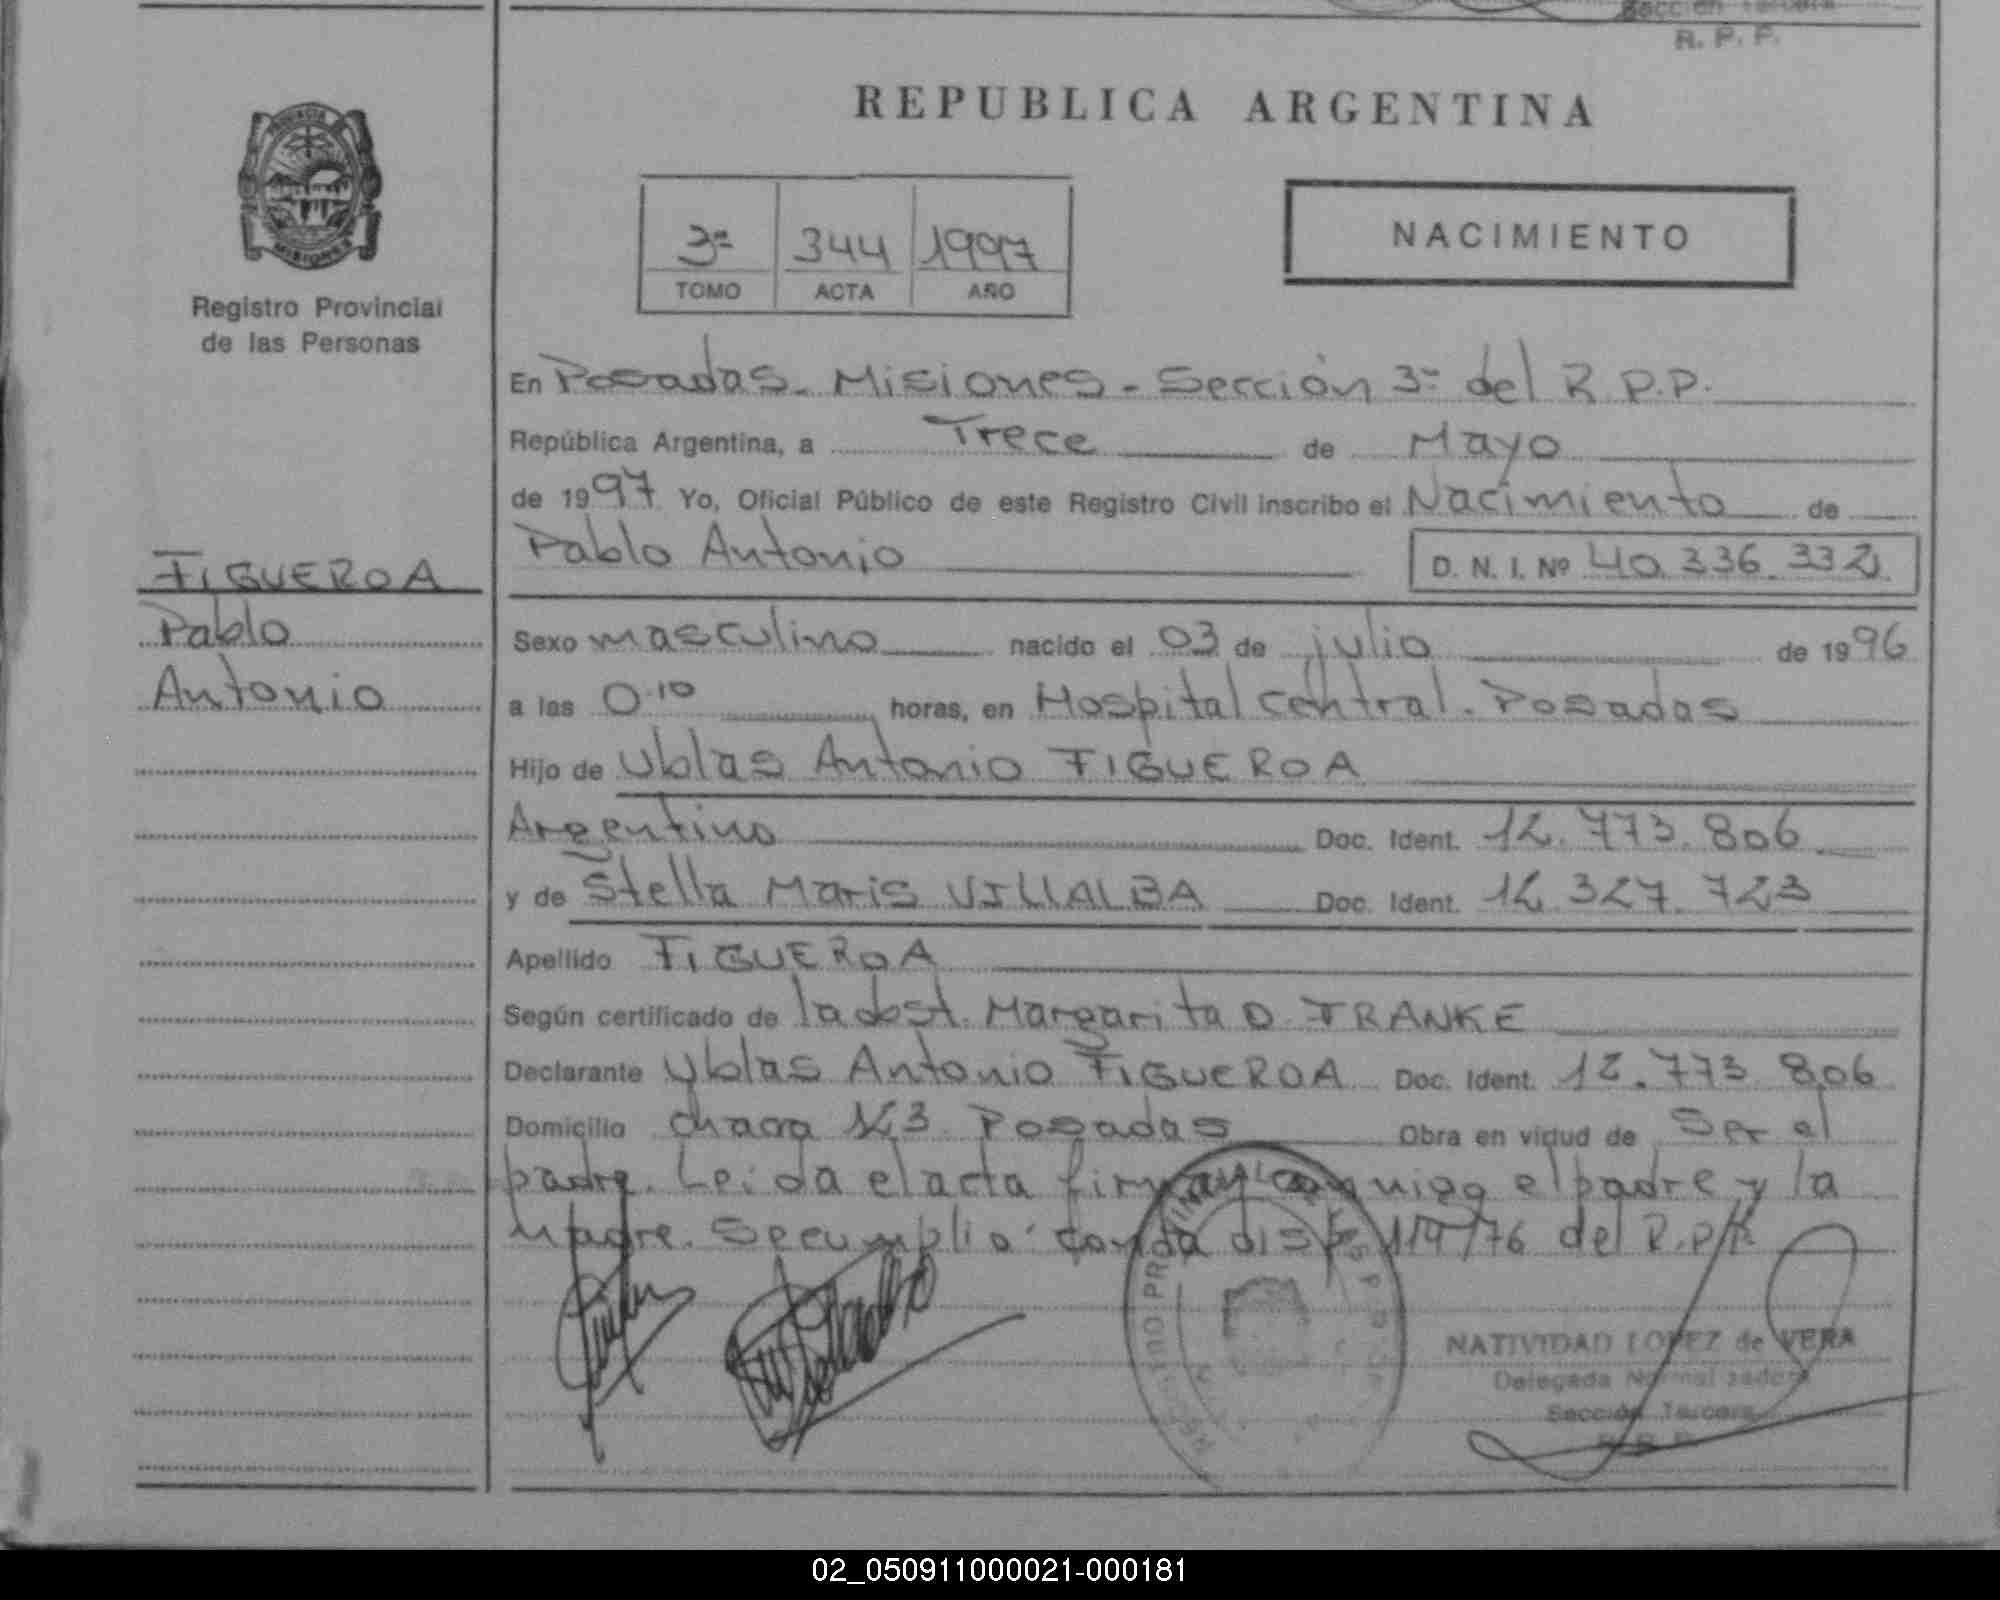 Sección Tercera
R. P. P.
REPUBLICA ARGENTINA
PROVINCIA
MISIONES
3ª 344 1997
TOMO ACTA AÑO
NACIMIENTO
Registro Provincial
de las Personas
En Posadas - Misiones - Sección 3ª del R.P.P.
República Argentina, a Trece de Mayo
de 1997 Yo, Oficial Público de este Registro Civil inscribo el Nacimiento de
Pablo Antonio D. N. I. Nº 40.336.332
FIGUEROA
Pablo
Antonio
Sexo masculino nacido el 03 de julio de 1996
a las 0.10 horas, en Hospital Central. Posadas
Hijo de Ublas Antonio FIGUEROA
Argentino Doc. Ident. 12.773.806
y de Stella Maris VILLALBA Doc. Ident. 12.327.723
Apellido FIGUEROA
Según certificado de la obst. Margarita D. FRANKE
Declarante Ublas Antonio FIGUEROA Doc. Ident. 12.773.806
Domicilio chacra 123 Posadas Obra en virtud de Ser el
padre. Leida el acta firman conmigo el padre y la
Madre. Se cumplió con la disp. 119/76 del R.P.P.
NATIVIDAD LOPEZ de VERA
Delegada Normalizadora
Sección Tercera
R. P. P.
02_050911000021-000181